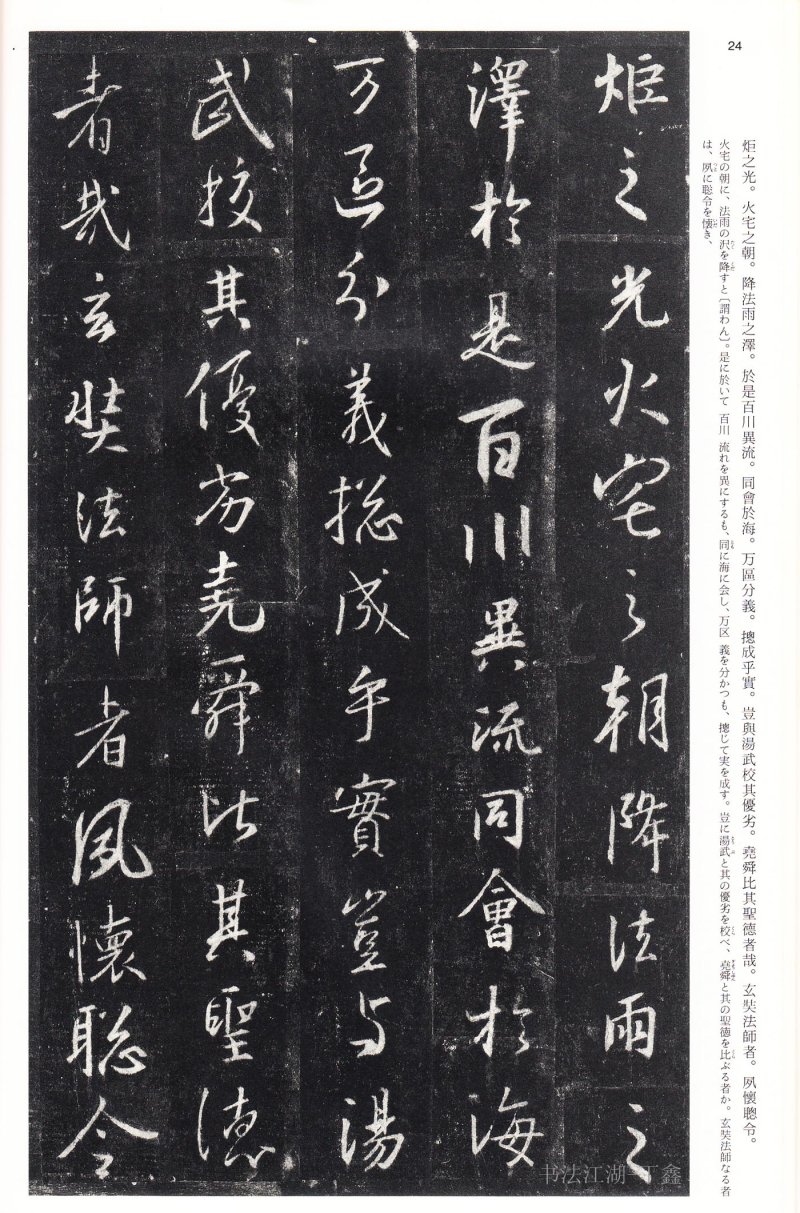 24
炬之光。火宅之朝。降法雨之澤。於是百川異流。同會於海。万區分義。摠成乎實。豈與湯武校其優劣。堯舜比其聖德者哉。玄奘法師者。夙懷聰令。
火宅の朝に、法雨の沢を降すと〔謂わん〕。是に於いて 百川 流れを異にするも、同に海に会し、万区 義を分かつも、摠じて実を成す。豈に湯武と其の優劣を校べ、堯舜と其の聖徳を比ぶる者か。玄奘法師なる者
は、夙に聡令を懐き、
炬之光火宅之朝降法雨之
澤於是百川異流同會於海
万區分義摠成乎實豈与湯
武校其優劣堯舜比其聖德
者哉玄奘法師者夙懷聰令
书法江湖-丁鑫